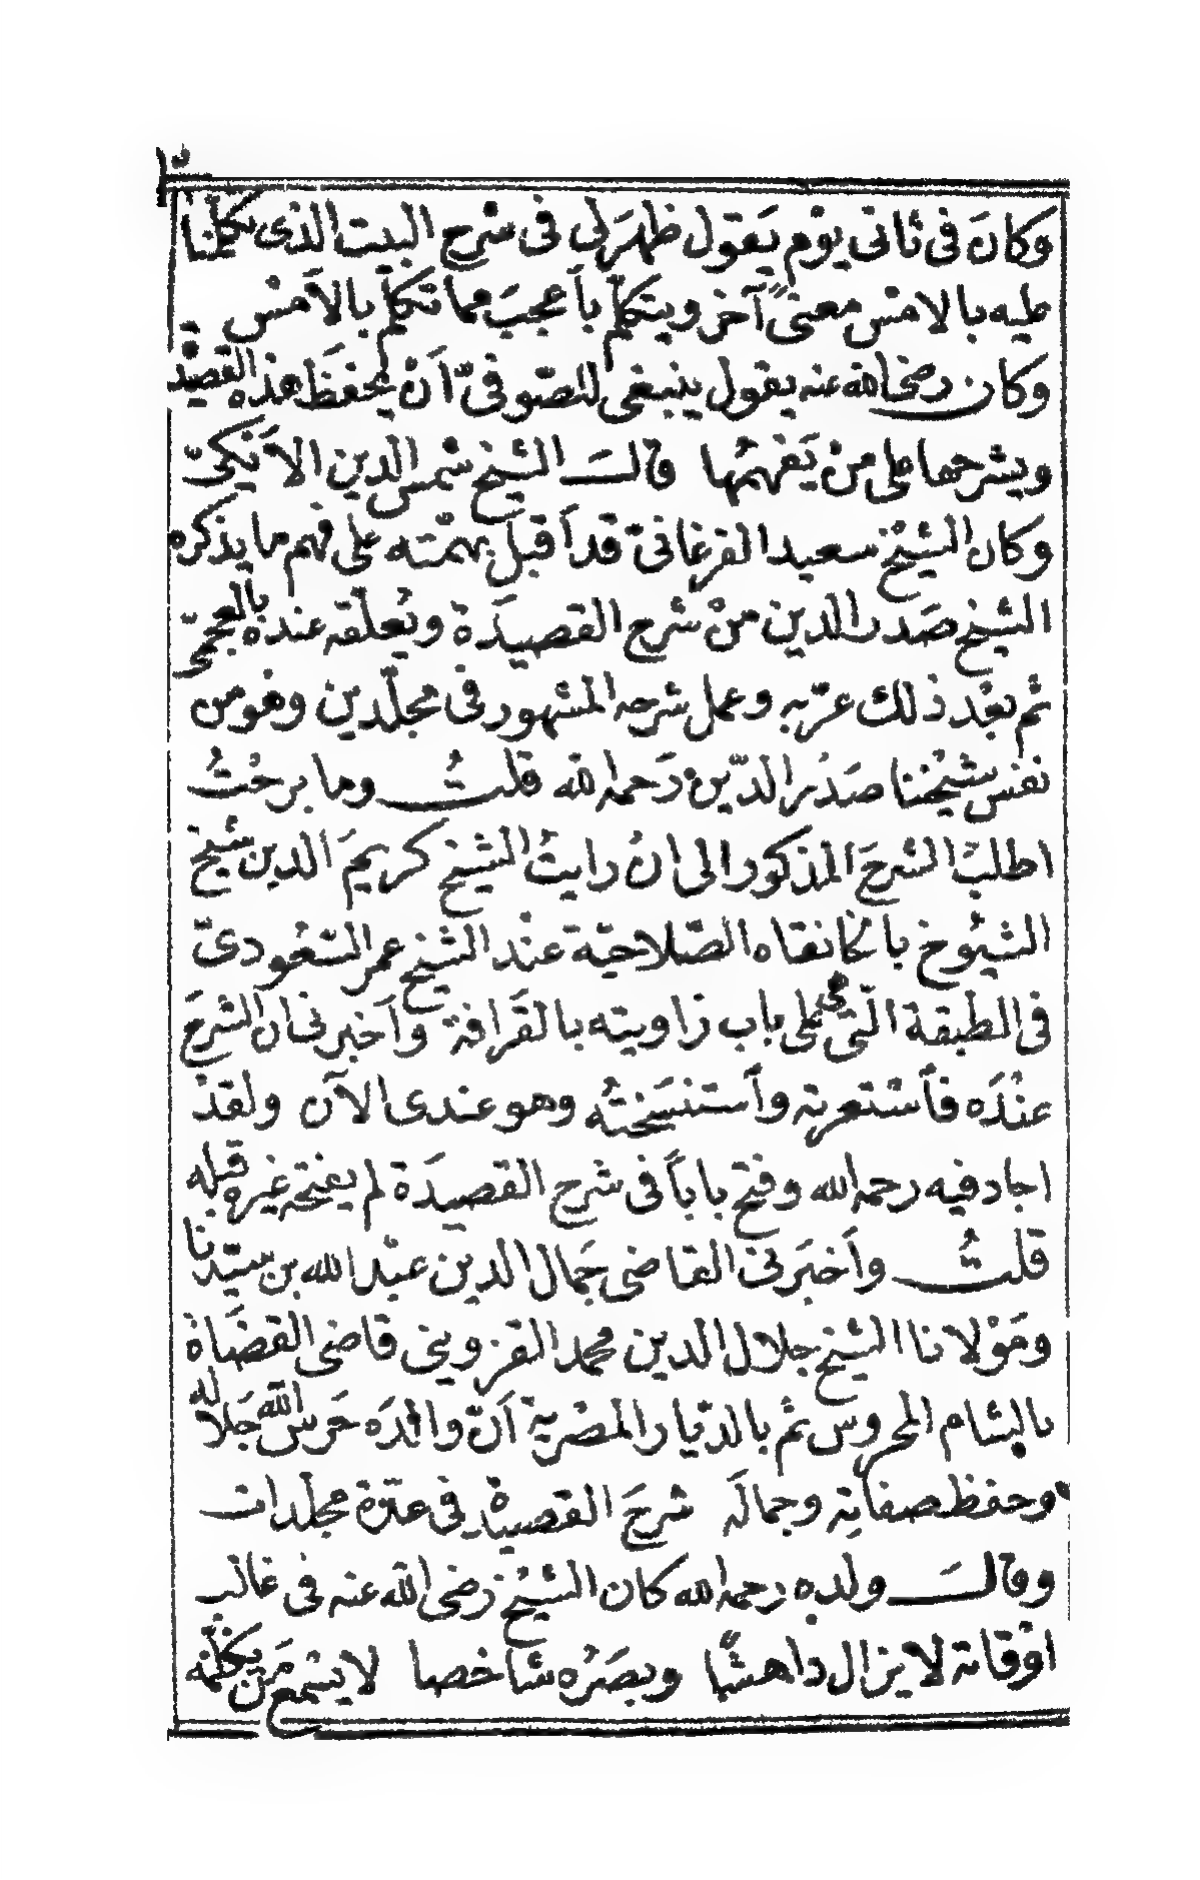 وكانَ فى ثانى يوْم يَقول ظهَرَ لى فى شرح البيت الذى تكلّمنا
عليه بالامْس معنىً آخر ويتكلّم بأعجبَ مما تكلّم بالأمْس
وكان رضى الله عنه يقول ينبغى للصّوفىّ اَنْ يحفظَ هذه القصيد
ويشرحها على منْ يَفهمُها قالَ الشيخ شمس الدين الأَيْكىّ
وكان الشيْخ سعيد الفرغانىّ قد أقبل بهمّته على فهم ما يذكره
الشيْخ صَدر الدين منْ شرح القصيدَة ويُعلّقه عنده بالعجمىّ
ثم بعْد ذلك عرّبه وعمل شرحه المشهور فى مجلّدين وهو من
نفس شيْخنا صَدْر الدّين رَحمه الله قلتُ وما برحْتُ
اطلبُ الشرحَ المذكور الى انْ رايتُ الشيخ كريمَ الدين شيْخ
الشيُوخ بالخانقاه الصّلاحيّة عنْد الشيْخ عمر السّعُودىّ
فى الطبقة الّتى هى على باب زاويته بالقَرافة وأخبرنى ان الشرحَ
عنْدَه فأسْتعرته وأستنسَختُه وهو عندى الآن ولقدْ
اجاد فيه رحمه الله وفتح باباً فى شرح القصيدَة لم يفتحه غيره قبله
قلتُ وأخبَرنى القاضى جَمال الدين عبْد الله بن سيّدنا
ومَوْلانا الشيخ جلال الدين محمد القزوينى قاضى القضَاة
بالشام المحروس ثم بالدّيار المصْريّة اَنّ والدَه حَرس الله جَلاله
وحفظ صفاته وجمالَه شرحَ القصيدة فى عدّة مجلّدات
وقالَ ولده رحمه الله كان الشيْخ رَضى الله عنه فى غالب
اوْقاته لا يزال داهشًا وبصَرُه شاخصا لا يسْمع مَن يكلّمه